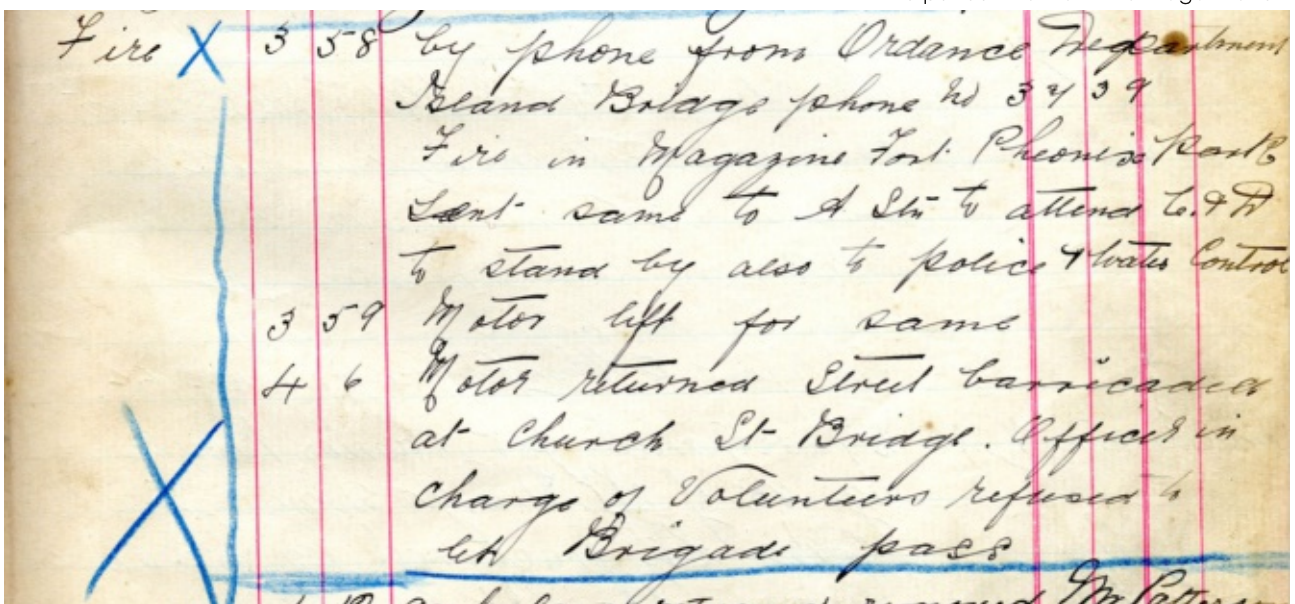 Fire X 3 58 by phone from Ordance Department
Island Bridge phone No 3739
Fire in Magazine Fort Pheonix Park
Sent same to A Stn to attend C. & D
to stand by also to police & Water Control
3 59 Motor left for same
4 6 Motor returned Street barricaded
at Church St Bridge. Officer in
charge of Volunteers refused to
let Brigade pass
Mr